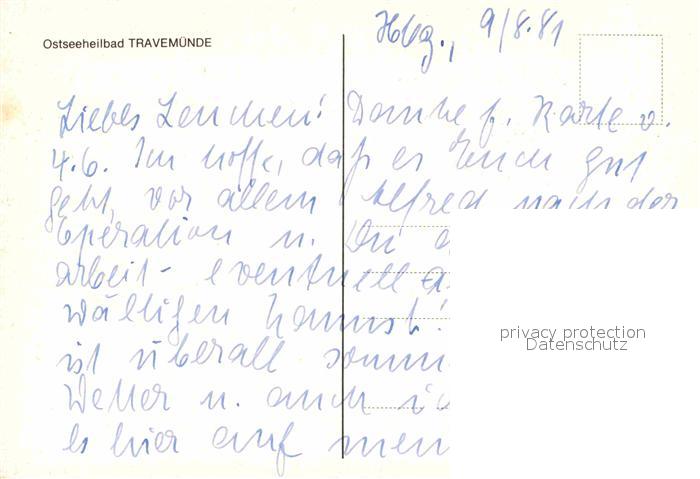 Ostseeheilbad TRAVEMÜNDE
Hbg., 9/8.81
Liebes Lenchen! Danke f. Karte v.
4.6. Ich hoffe, daß es Euch gut
geht, vor allem Alfred nach der
Operation u. Du
arbeit- eventuell
wältigen kannst!
ist überall somm
Wetter u. auch ic
es hier auf mein
privacy protection
Datenschutz